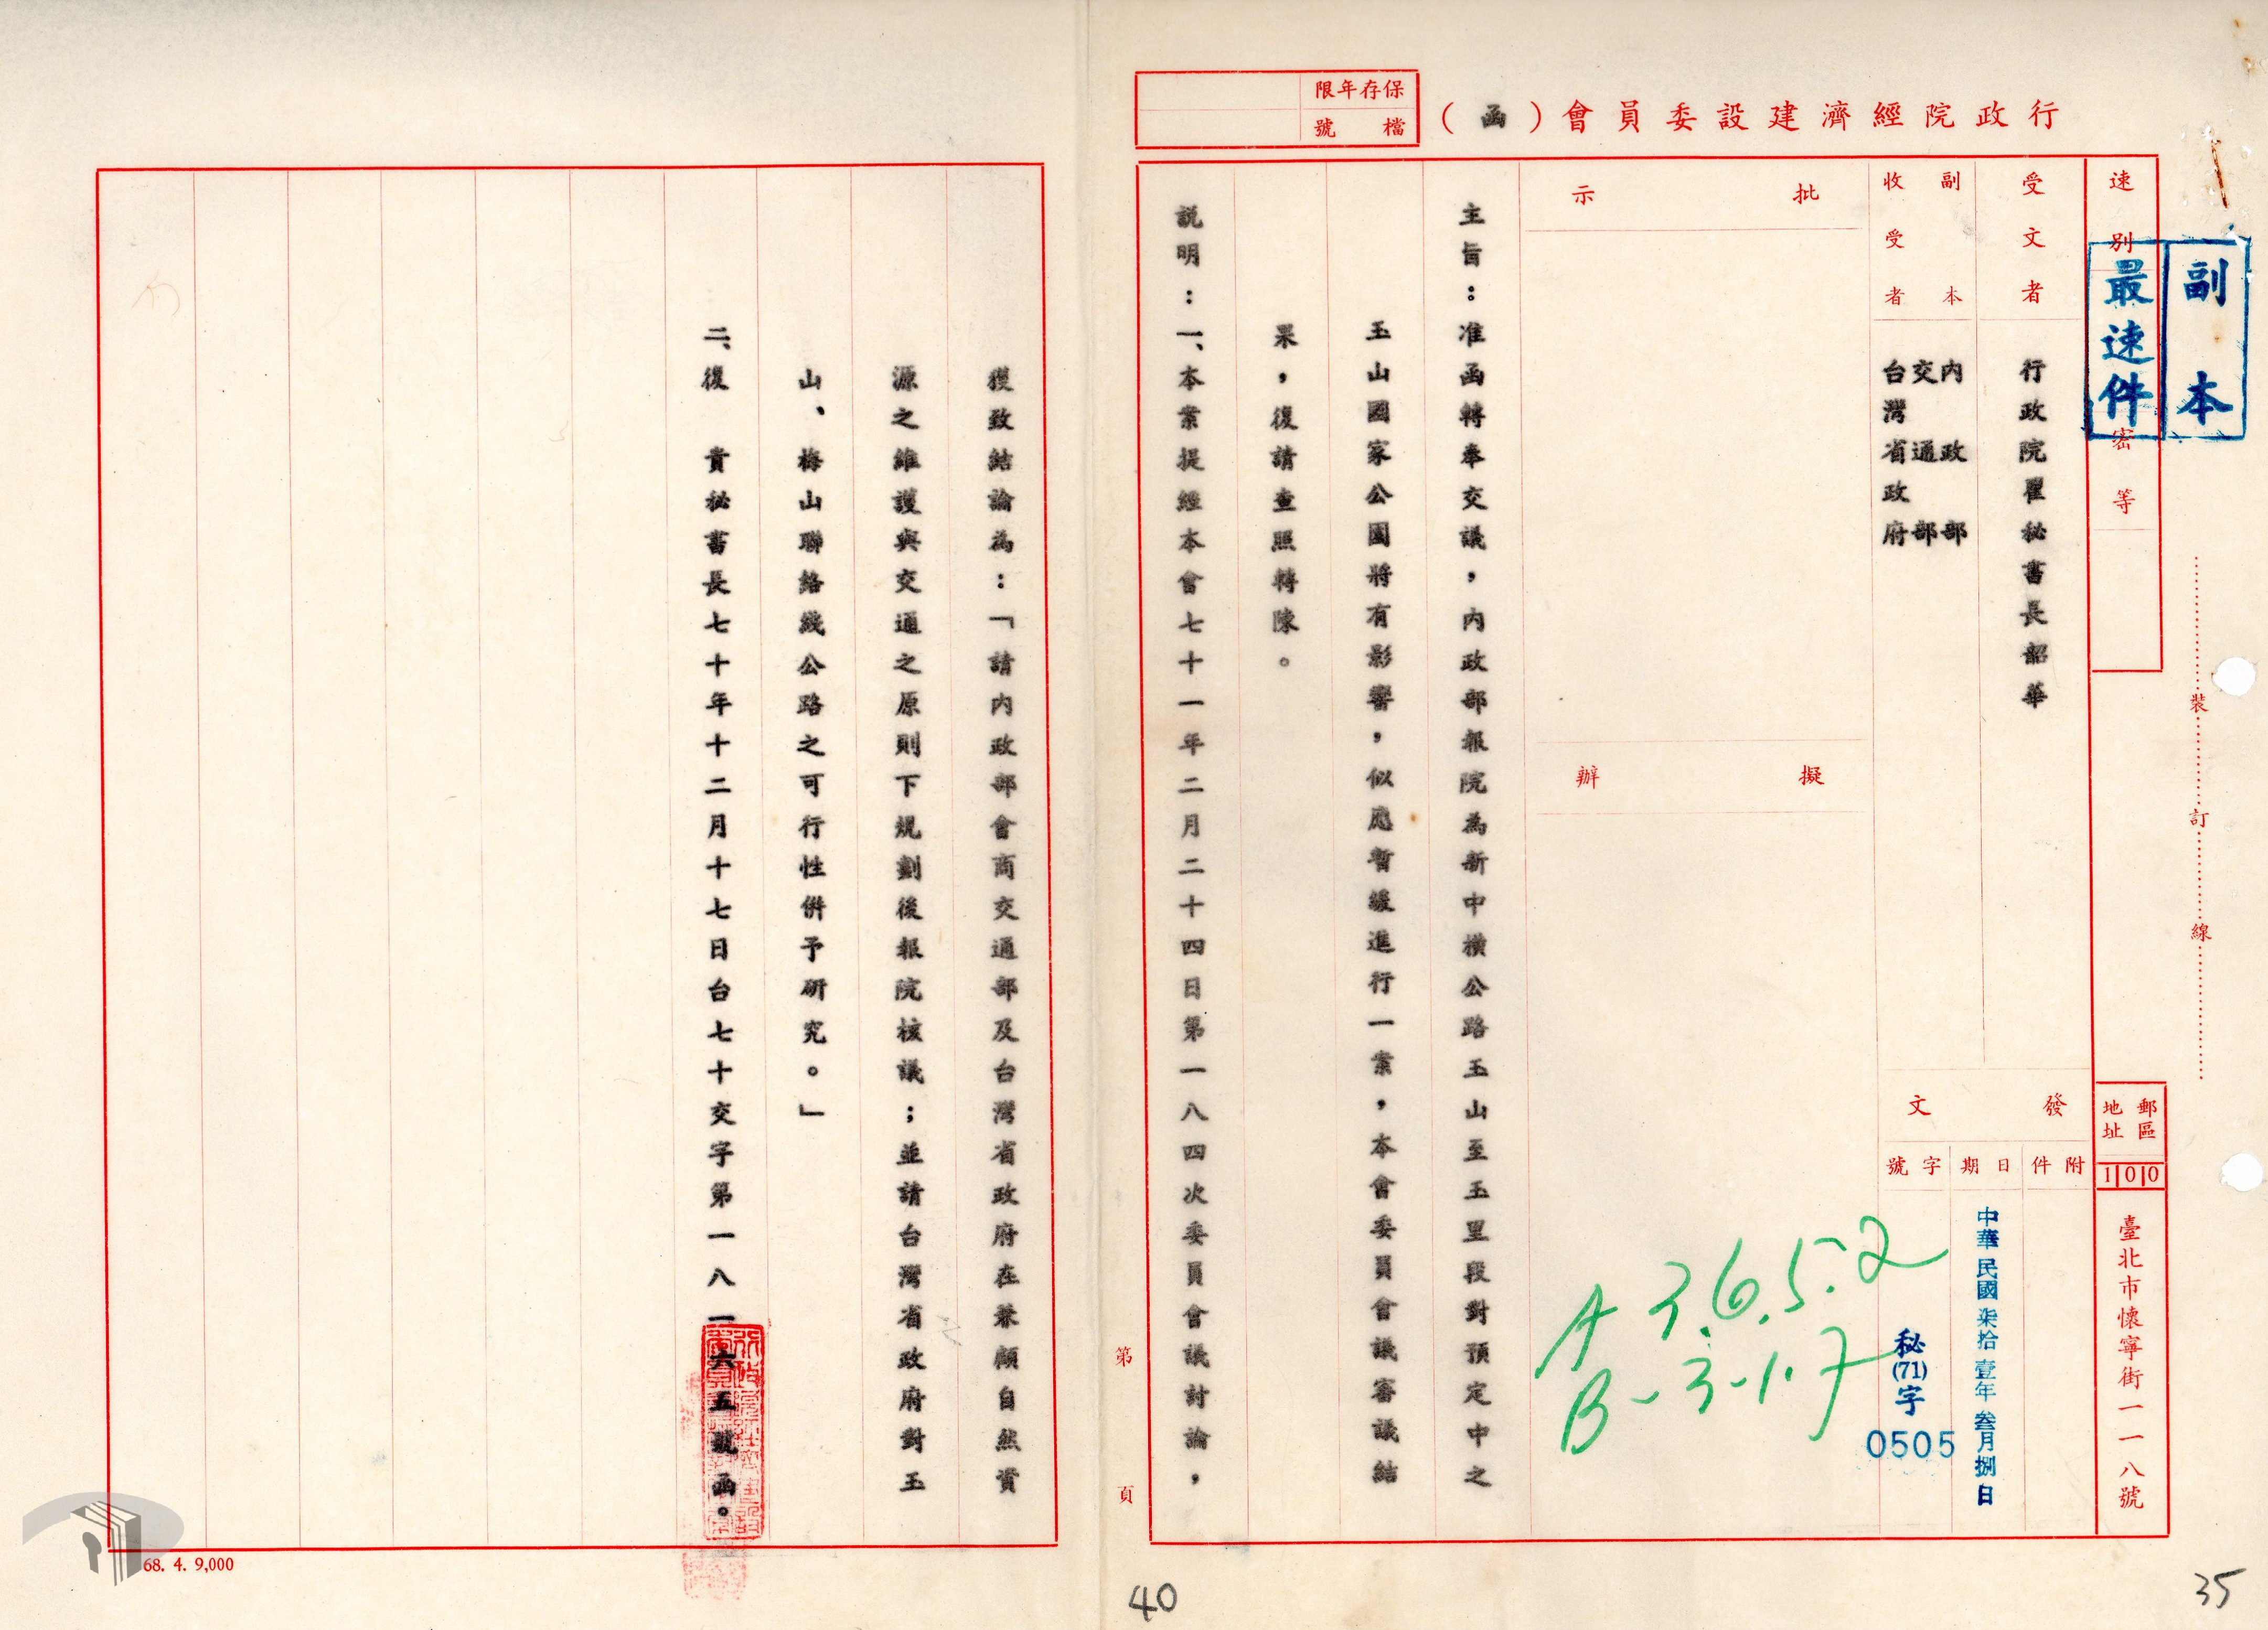 行政院經濟建設委員會（函）
保存年限
檔號
副本
最速件
速別
密等
受文者
行政院瞿秘書長韶華
副本收受者
內政部
交通部
台灣省政府
批示
擬辦
發文
附件
日期
字號
中華民國柒拾壹年叁月捌日
秘(71)字
0505
郵區
地址
100
臺北市懷寧街一一八號
裝訂線
A 3.6.5.2
B-3-1.7
主旨：准函轉奉交議，內政部報院為新中橫公路玉山至玉里段對預定中之
玉山國家公園將有影響，似應暫緩進行一案，本會委員會議審議結
果，復請查照轉陳。
說明：一、本案提經本會七十一年二月二十四日第一八四次委員會議討論，
第 頁
獲致結論為：「請內政部會商交通部及台灣省政府在兼顧自然資
源之維護與交通之原則下規劃後報院核議；並請台灣省政府對玉
山、梅山聯絡綫公路之可行性併予研究。」
二、復 貴秘書長七十年十二月十七日台七十交字第一八一六五號函。
68. 4. 9,000
40
35